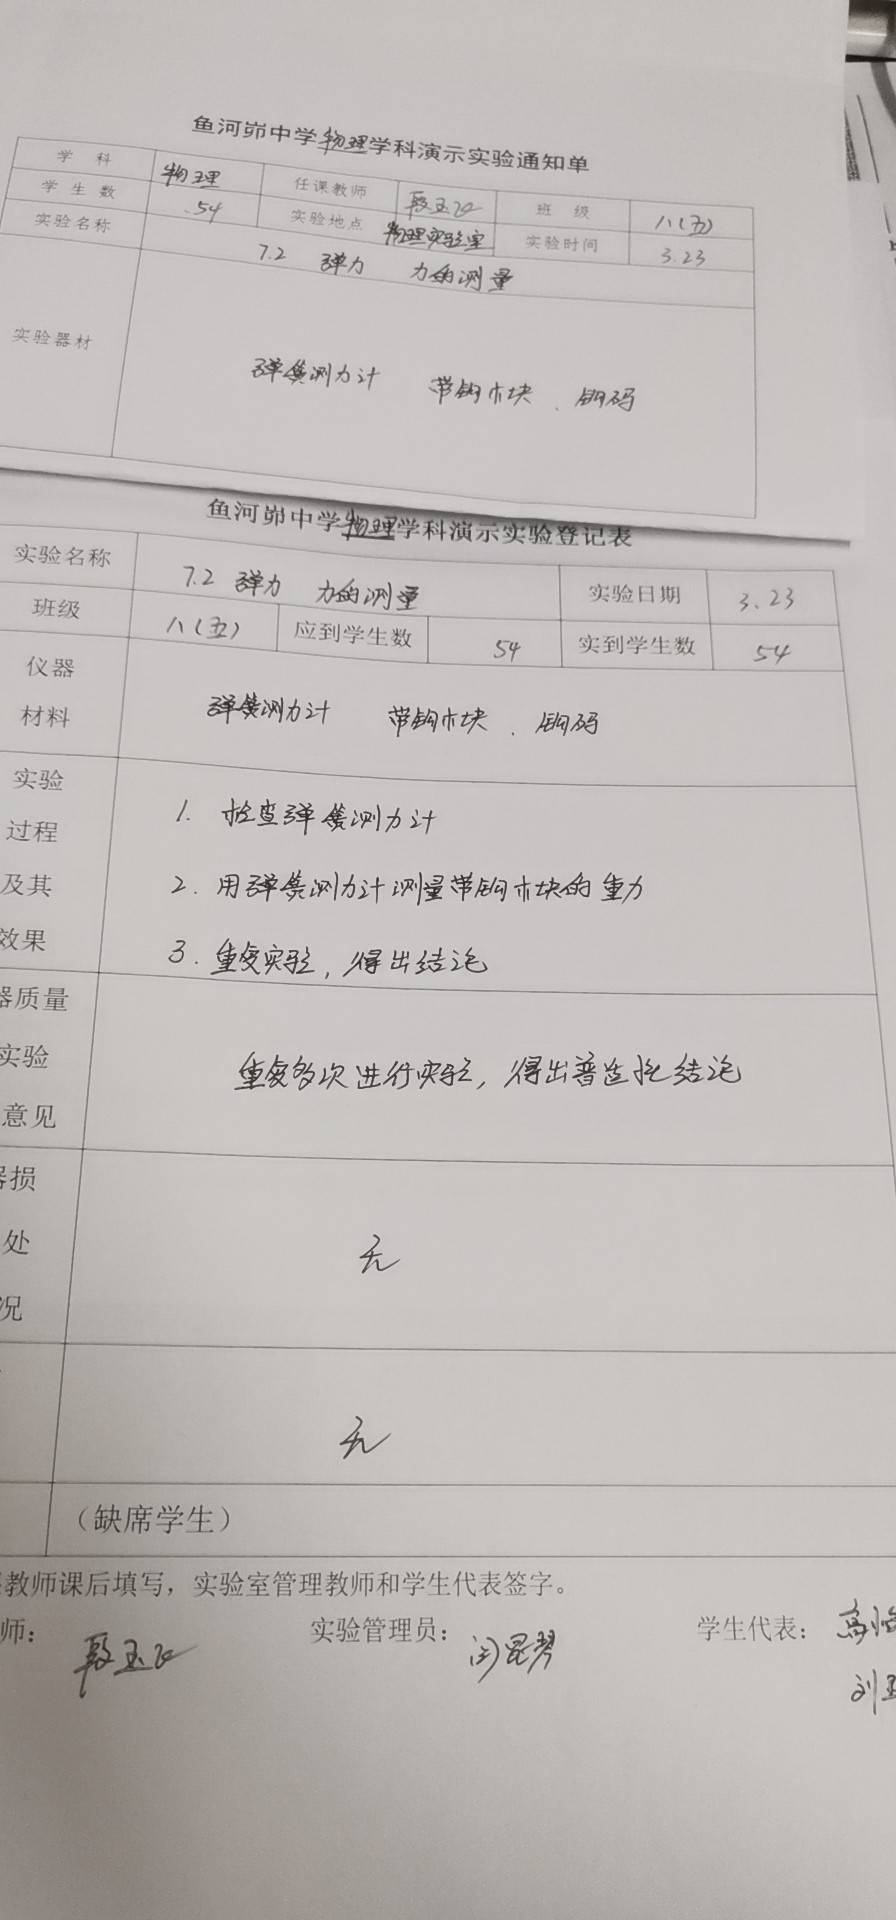 鱼河峁中学物理学科演示实验通知单
学 科 物理 任课教师 段玉飞 班 级 八(五)
学 生 数 54 实验地点 物理实验室 实验时间 3.23
实验名称 7.2 弹力 力的测量
实验器材 弹簧测力计 带钩木块、钩码
鱼河峁中学物理学科演示实验登记表
实验名称 7.2 弹力 力的测量 实验日期 3.23
班级 八(五) 应到学生数 54 实到学生数 54
仪器
材料
弹簧测力计 带钩木块、钩码
实验
过程
及其
效果
1. 检查弹簧测力计
2. 用弹簧测力计测量带钩木块的重力
3. 重复实验,得出结论
器质量
实验
意见
重复多次进行实验,得出普遍性结论
器损
处
况
无
无
(缺席学生)
教师课后填写,实验室管理教师和学生代表签字。
师: 段玉飞 实验管理员: 闫昆琴 学生代表: 高
刘